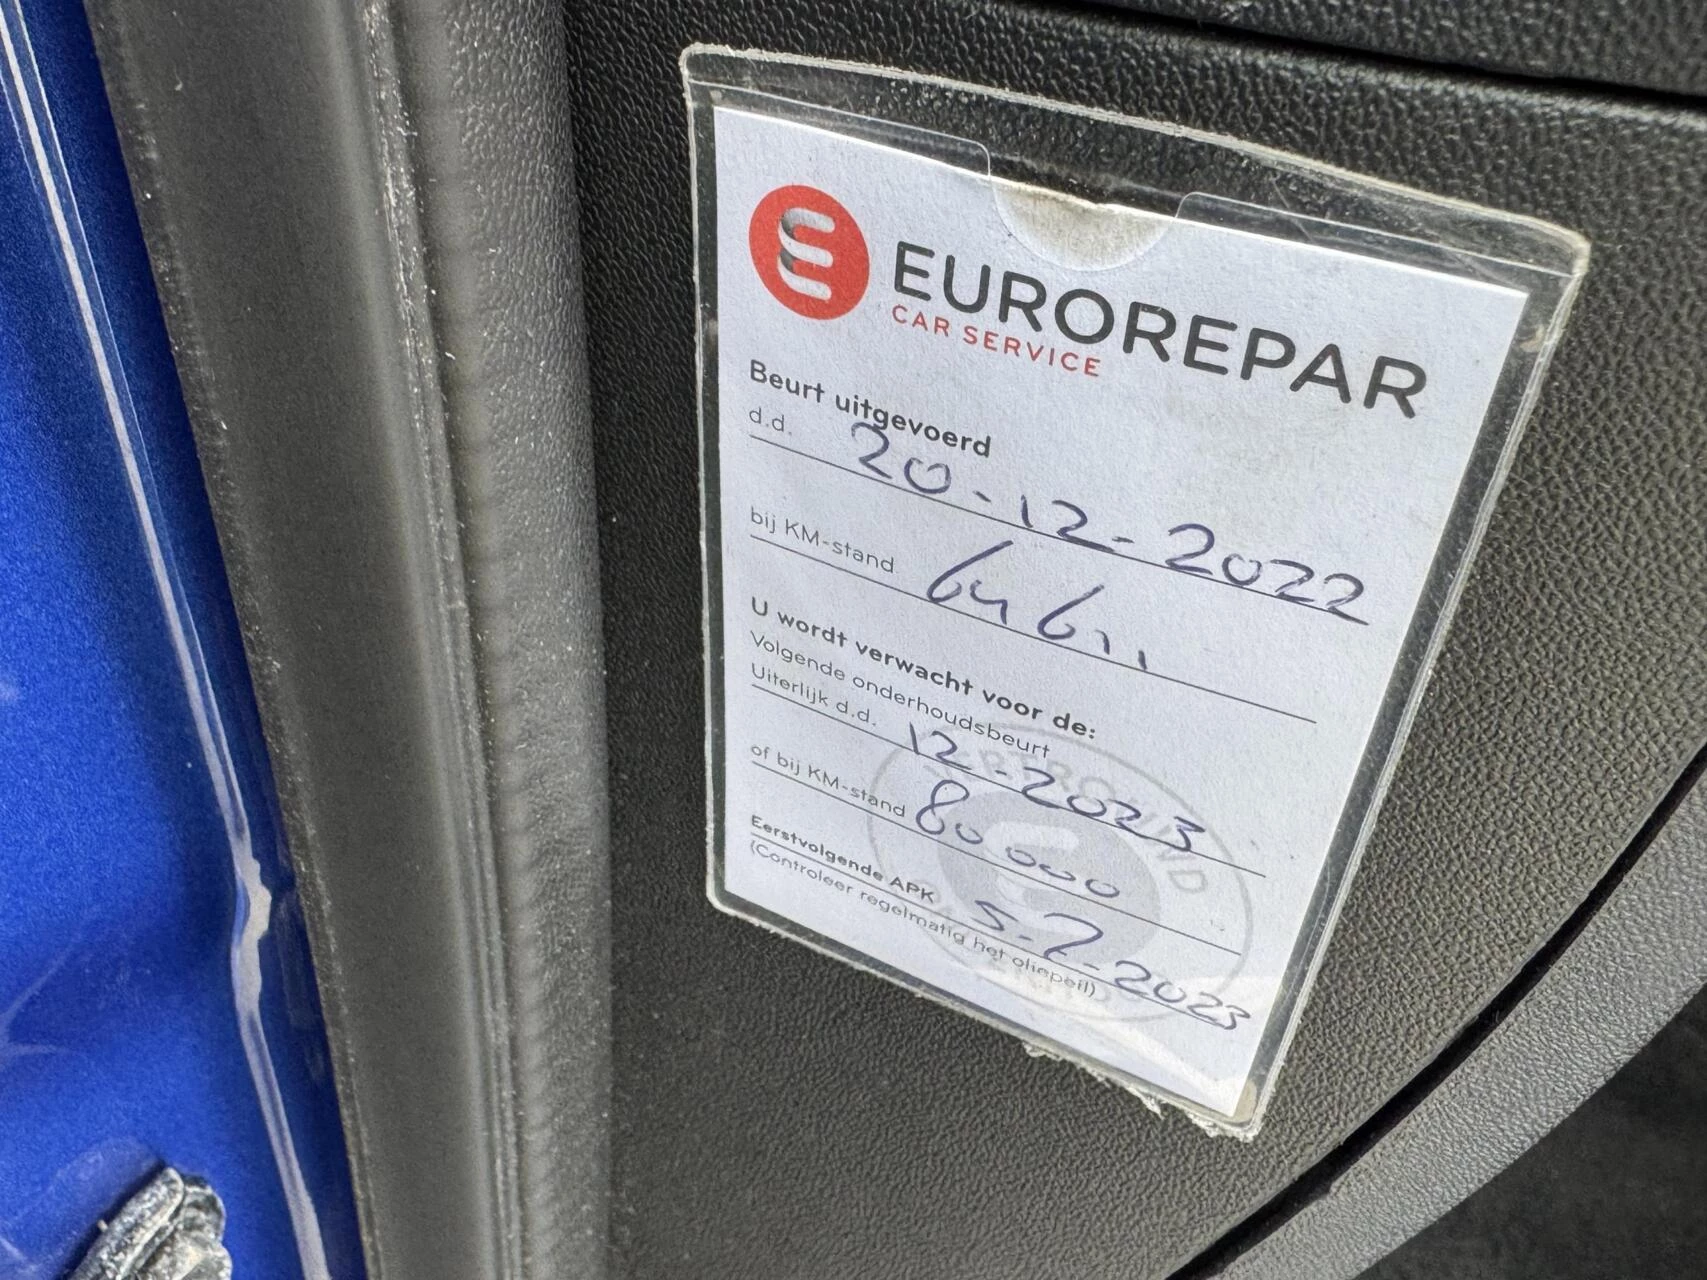 EUROREPAR
CAR SERVICE
Beurt uitgevoerd
d.d. 20-12-2022
bij KM-stand
U wordt verwacht voor de:
Volgende onderhoudsbeurt
Uiterlijk d.d. 12-2023
of bij KM-stand 80 000
Eerstvolgende APK 5-2-2023
(Controleer regelmatig het oliepeil)